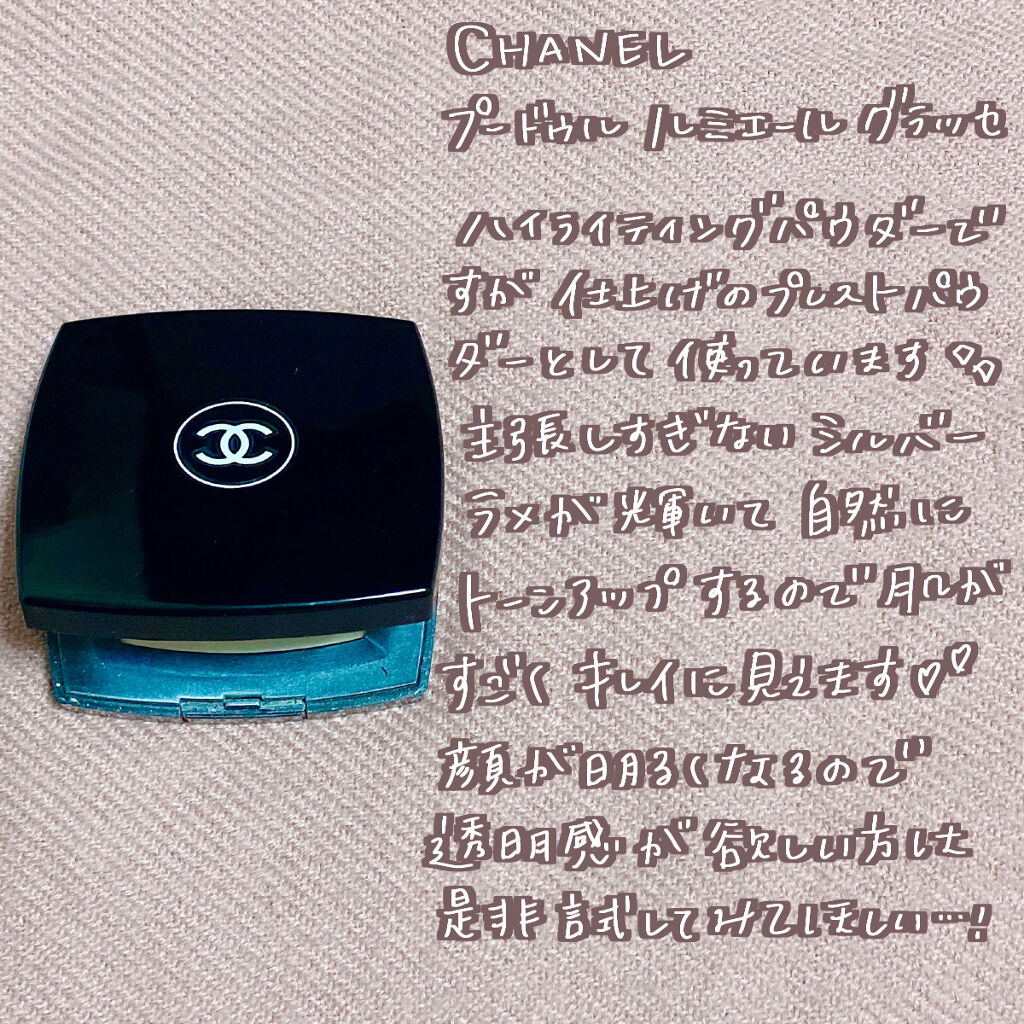 CHANEL
プードゥル ルミエール グラッセ
ハイライティングパウダーで
すが 仕上げのプレストパウ
ダーとして 使っています
主張しすぎない シルバー
ラメが 輝いて 自然に
トーンアップ するので 肌が
すごく キレイに 見えます♡♡
顔が明るくなるので
透明感が欲しい方は
是非 試してみてほしい…!